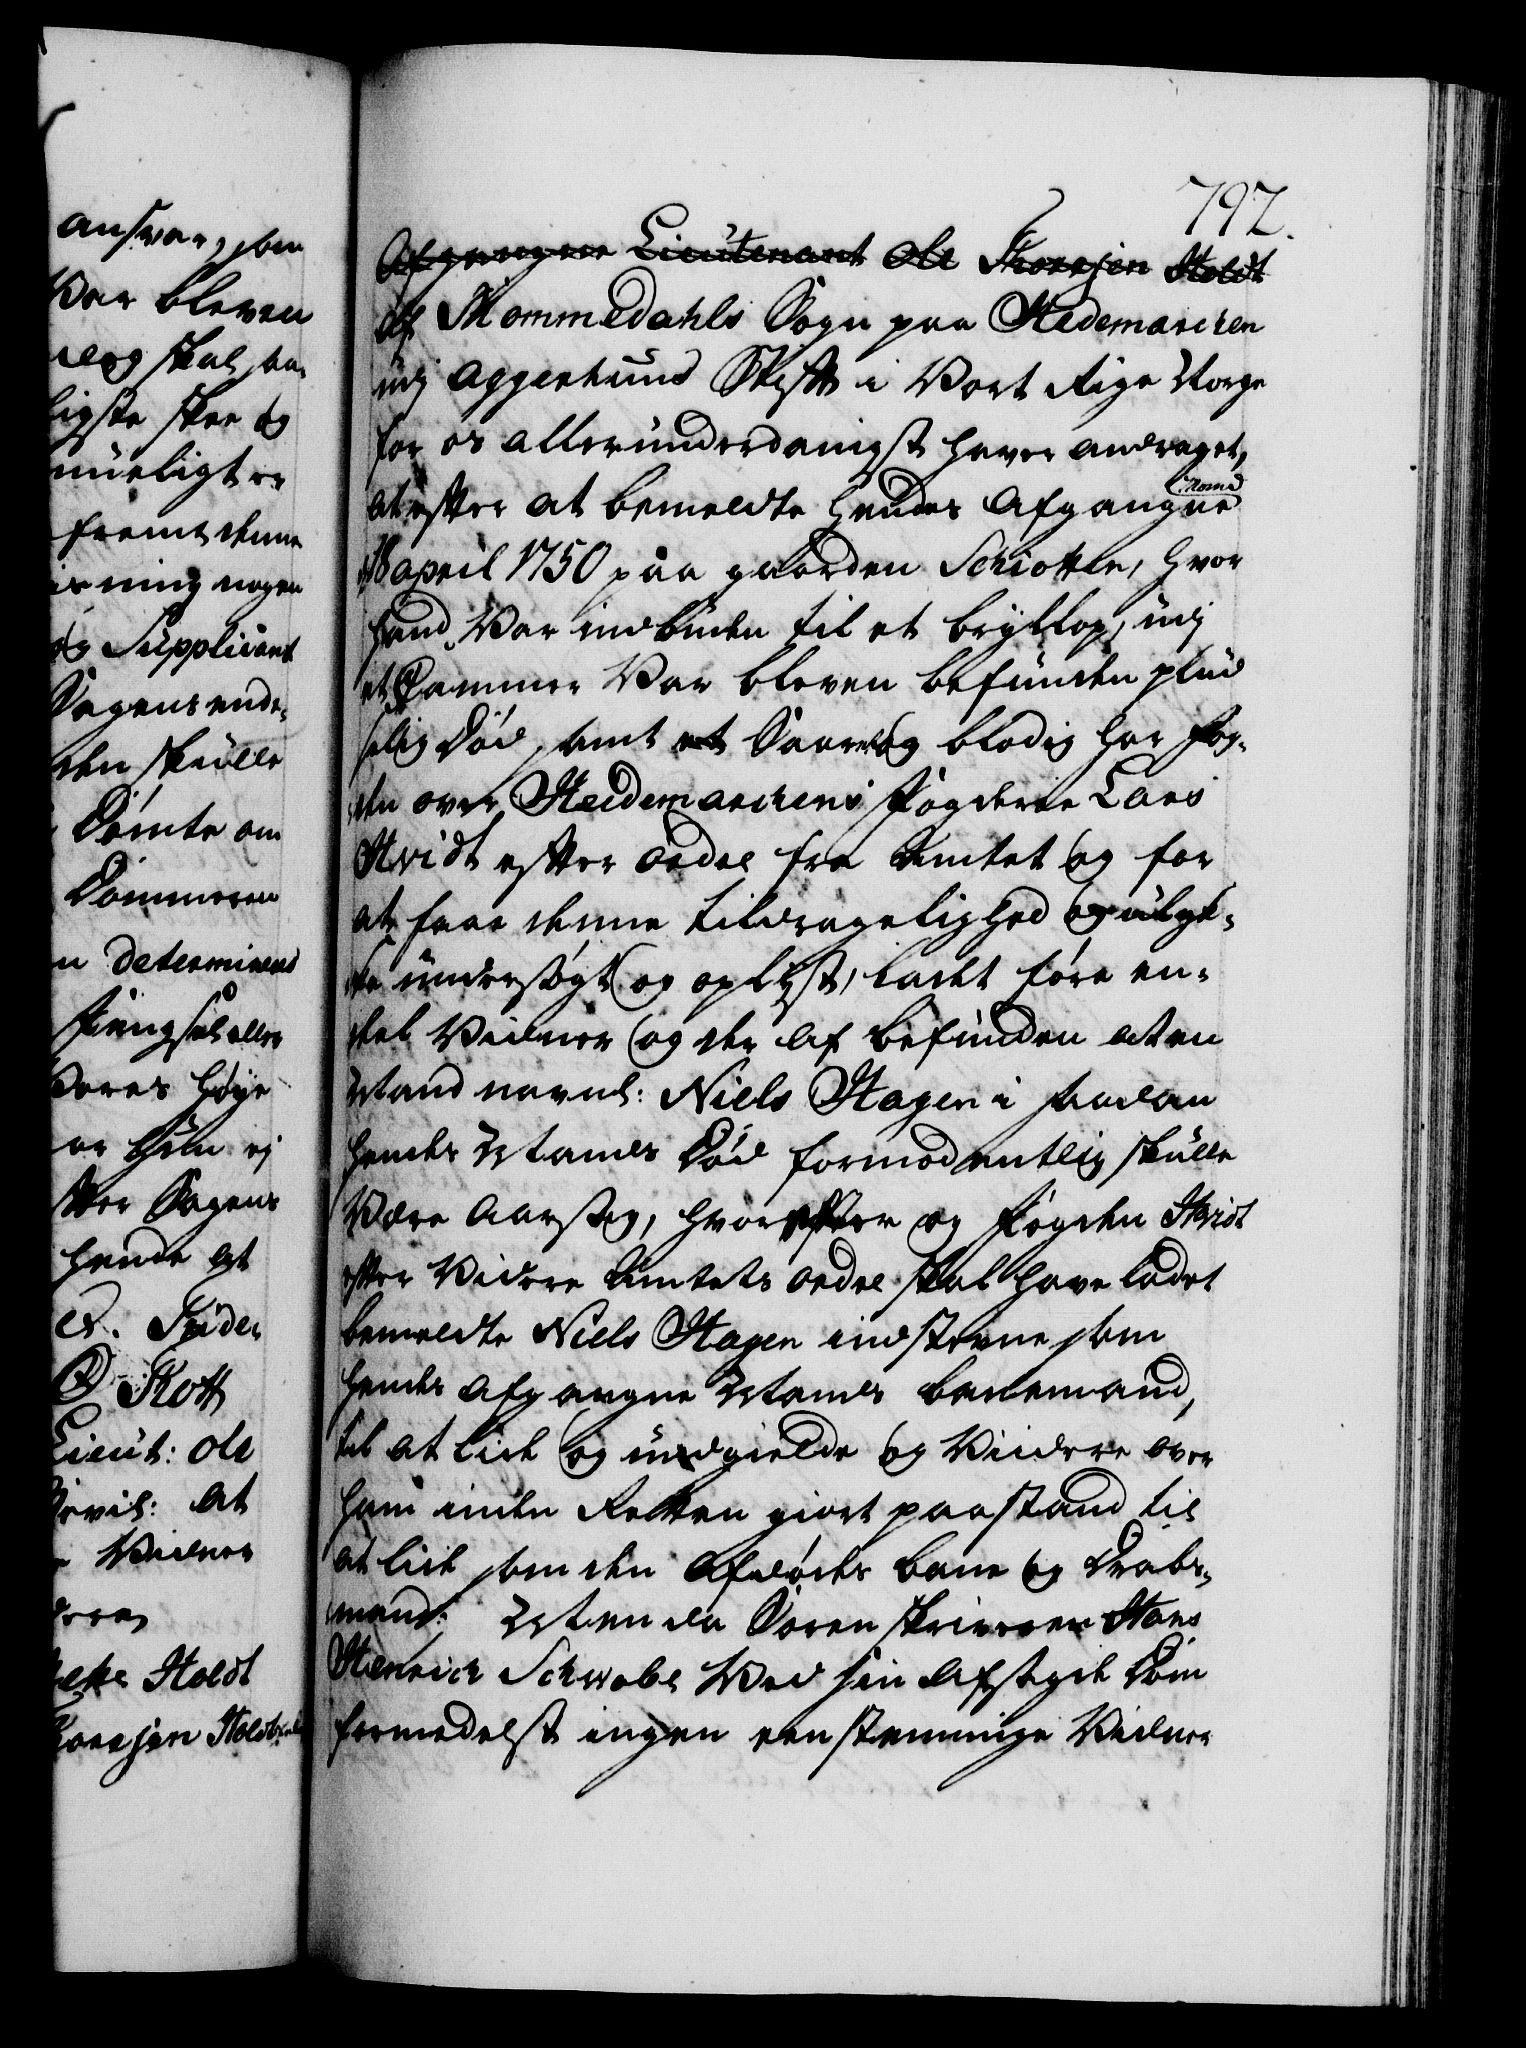 ansvar, som
Var bleven
ligste skee og
mueligt er
fremt denne
ning nogen
og Supplicant
Sagens ende-
den skulle
Dömte om
Dommeren
n determineret
Fængsel eller
Vores høye
or hun ej
efter Sagens
hende at
Kott
Lieut: Ole
Privil: at
Vidner
Holdt
Thoresen Holdt
792.
Afgangne Lieutenant Ole Thoresen Holdt
af Rommedahls Sogn paa Hedemarchen
udj Aggerhuus Stift i Vort Rige Norge
for os allerunderdanigst haver andraget,
at efter at bemeldte hendes Afgangne Mand
18 april 1750 paa gaarden Schiotten, hvor
hand Var indbuden til et bryllop, udj
et Cammer Var bleven befunden plud
selig Död, samt et Saaret og blodig har Fog-
den over Heedemarchens Fogderie Lars
Hvidt efter Ordre fra Amtet og for
at faae denne tildragelighed og ulyk-
ke undersögt og oplyst, ladet före en-
deel Vidner og der af befunden at en
Mand navnl: Niels Hagen i saadan
hendes Mands Död formodentlig skulle
Være Aarsag, hvorefter og Fogden Hvidt
efter Videre Amtets Ordre skal have ladet
bemeldte Niels Hagen indstevne som
hendes afgangne Mands banemand,
til at lide og undgielde og Viidere over
ham inden Retten giort paastand til
at lide som den Afdödes bane og Drabs-
mand: Men da Sorenskriveren Hans
Henrich Schwabe Ved sin Afsagde Dom
formedelst ingen eenstemmige Vidner